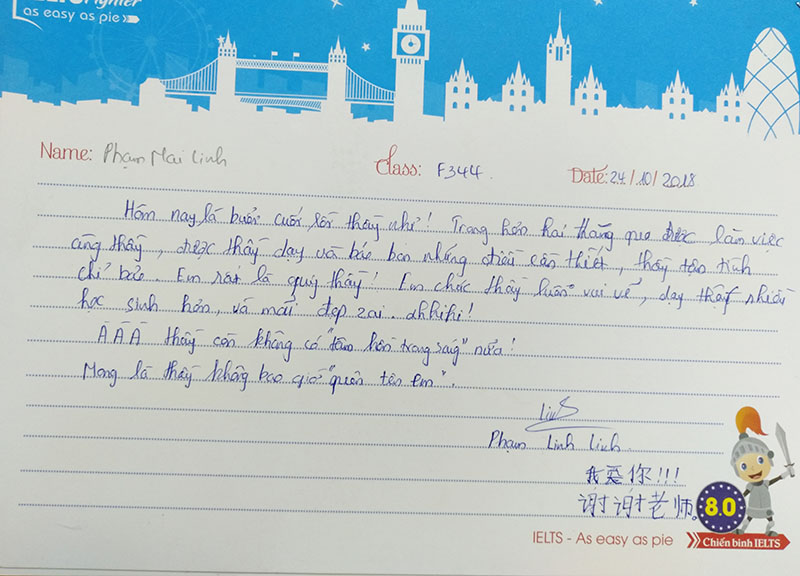 Fighter
as easy as pie
Name: Phạm Mai Linh
Class: F344.
Date: 24/10/2018
Hôm nay là buổi cuối rồi thầy nhỉ! Trong hơn hai tháng qua được làm việc
cùng thầy, được thầy dạy và bảo ban những điều cần thiết, thầy tận tình
chỉ bảo. Em rất là quý thầy! Em chúc thầy luôn vui vẻ, dạy thêm nhiều
học sinh hơn, và mãi đẹp zai. ahihi!
À À À thầy còn không có "tâm hồn trong sáng" nữa!
Mong là thầy không bao giờ "quên tên em".
Linh
Phạm Linh Linh.
我爱你!!!
谢谢老师。
8.0
IELTS - As easy as pie
Chiến binh IELTS